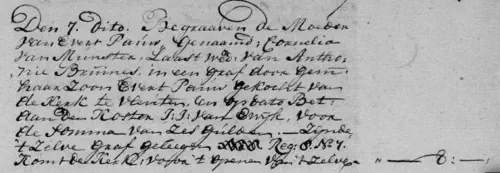 Den 7. Dito. Begraaven de Moeder
van Evert Panis, Genaamd; Cornelia
van Munster, Laast wed: van Antho,
nie Brinnes, in een graf door gem:
haar Zoon Evert Panis gekocht van
de Kerk te vleuten, en op dato Bet:
aan den Koster J: J: van Ewijk, voor
de Somma van Zes Gulden. — Zijnde
't Zelve graf geleegen Reg: 8. No 7.
Komt de Kerk, voor 't openen van 't zelve — " — 8 : —